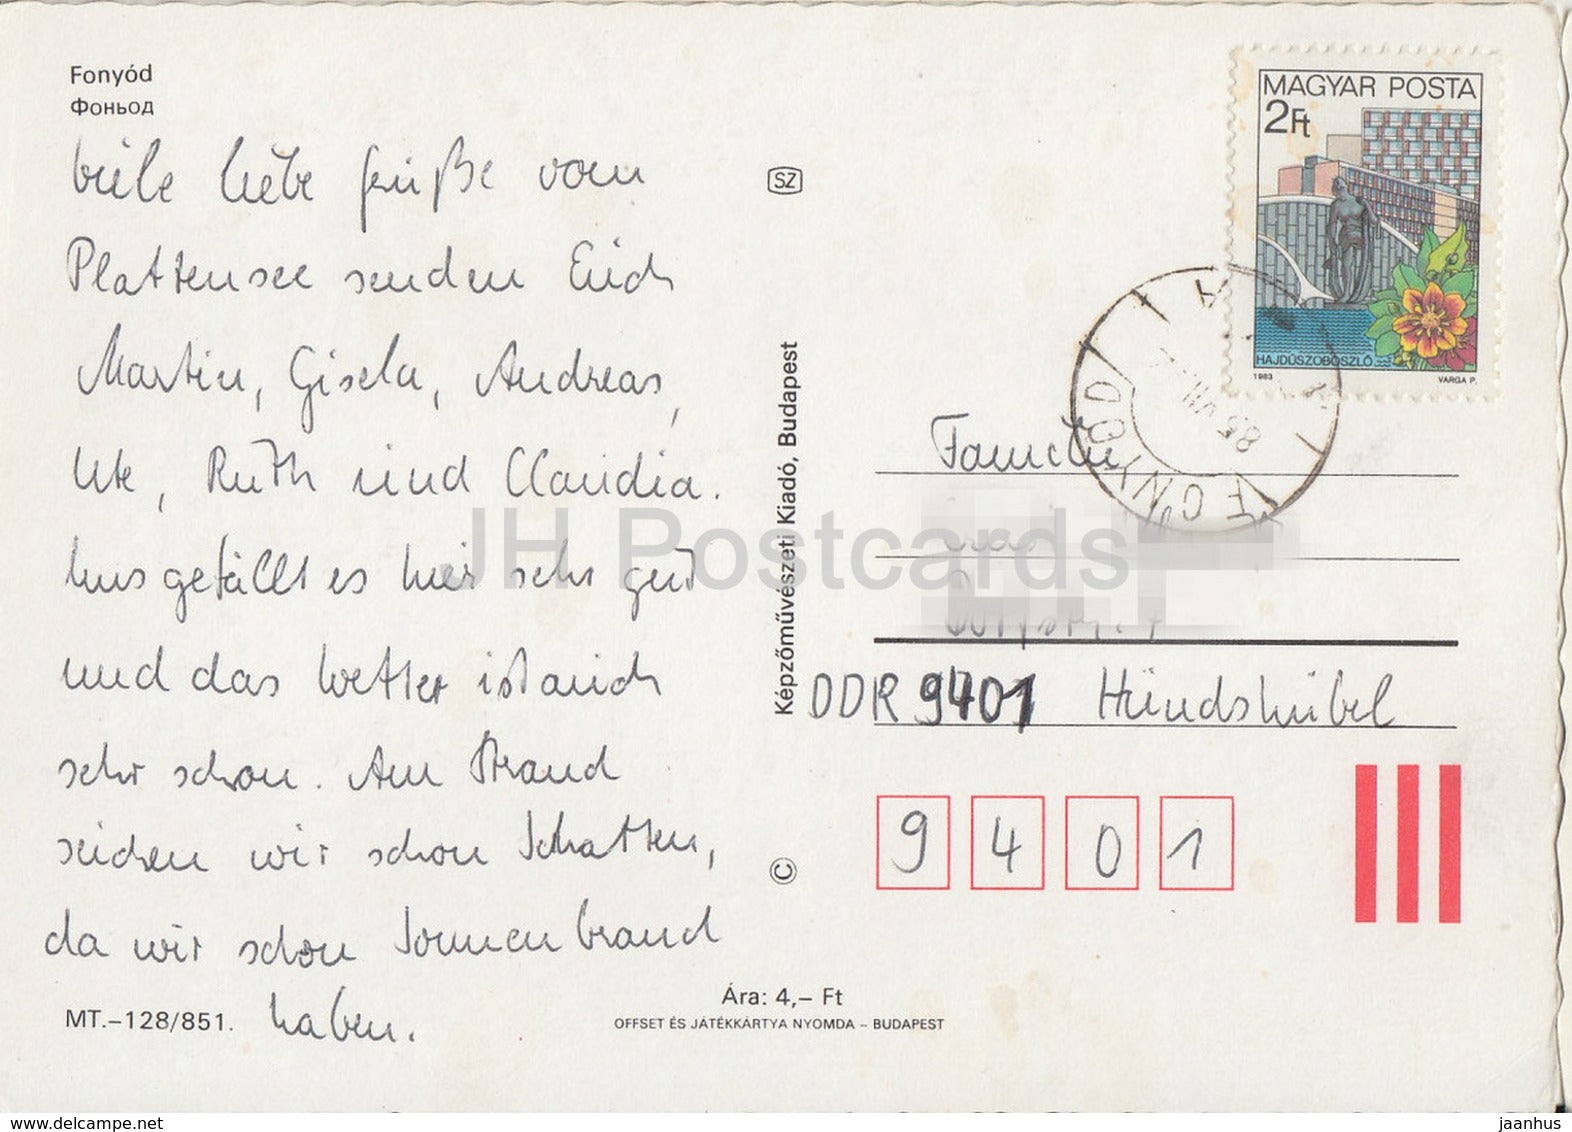 Fonyód
Фоньод
viele liebe Grüße vom
Plattensee senden Euch
Martin, Gisela, Andreas,
Ute, Ruth und Claudia.
Uns gefällt es hier sehr gut
und das Wetter ist auch
sehr schön. Am Strand
suchen wir schon Schatten,
da wir schon Sonnenbrand
haben.
MT.–128/851.
Ára: 4,– Ft
OFFSET ÉS JÁTÉKKÁRTYA NYOMDA – BUDAPEST
SZ
Képzőművészeti Kiadó, Budapest
©
MAGYAR POSTA
2Ft
HAJDÚSZOBOSZLÓ
1983 VARGA P.
FONYÓD
85 VII
Familie
DDR 9401 Hundshübel
9 4 0 1
JH Postcards
www.delcampe.net
jaanhus